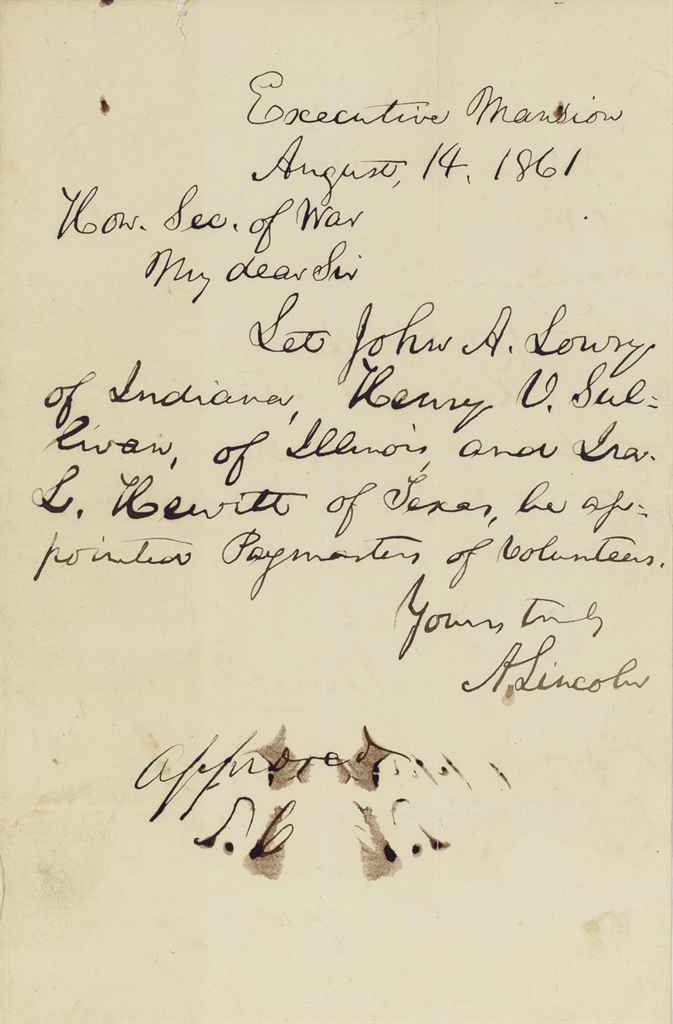 Executive Mansion
August, 14, 1861
Hon. Sec. of War
My dear Sir
Let John A. Lowry
of Indiana, Henry V. Sul=
livan, of Illinois, and Ira.
L. Hewitt of Texas, be ap=
pointed Paymasters of Volunteers.
Yours truly
A. Lincoln
Approved
S. C